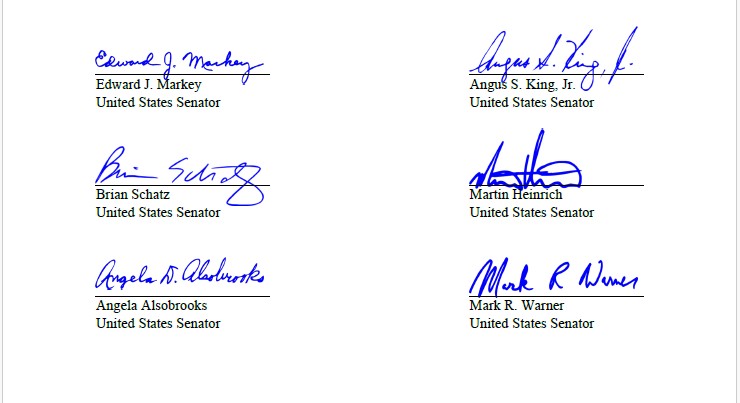 Edward J. Markey
Edward J. Markey
United States Senator
Angus S. King, Jr.
Angus S. King, Jr.
United States Senator
Brian Schatz
Brian Schatz
United States Senator
Martin Heinrich
United States Senator
Angela D. Alsobrooks
Angela Alsobrooks
United States Senator
Mark R Warner
Mark R. Warner
United States Senator